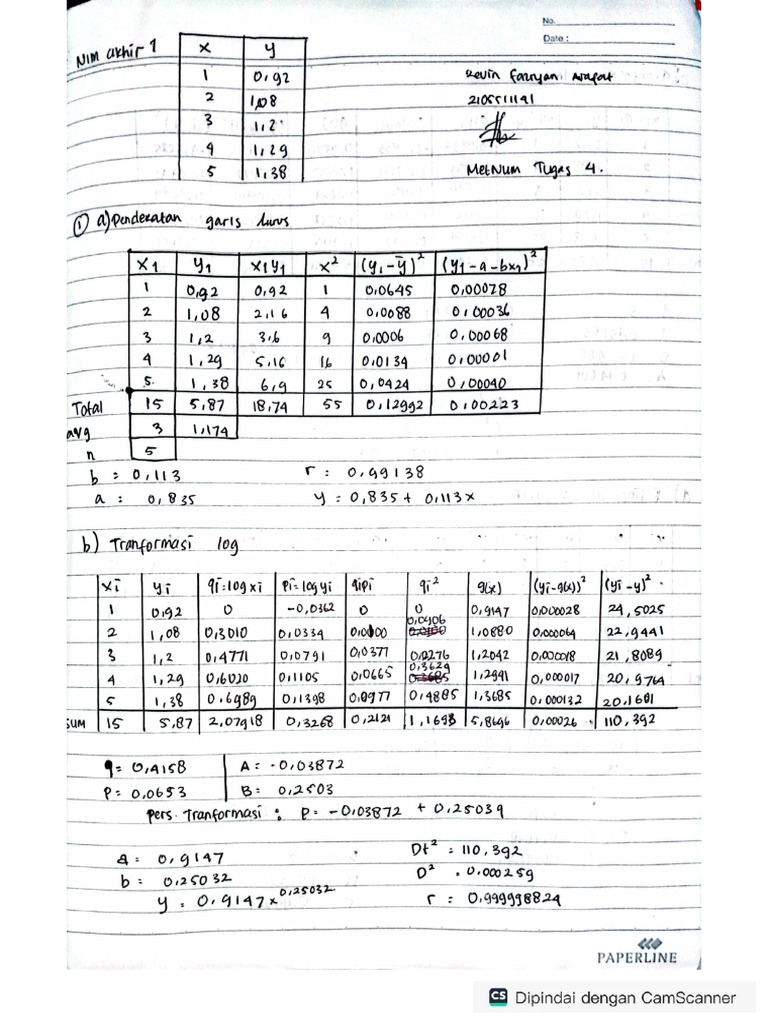 No.
Date :
NIM akhir 1
x y
1 0,92
2 1,08
3 1,2
4 1,29
5 1,38
2105511141
MetNum Tugas 4.
① a) Pendekatan garis lurus
x1 y1 x1y1 x² (y1-ȳ)² (y1-a-bx1)²
1 0,92 0,92 1 0,0645 0,00078
2 1,08 2,16 4 0,0088 0,00036
3 1,2 3,6 9 0,0006 0,00068
4 1,29 5,16 16 0,0134 0,00001
5 1,38 6,9 25 0,0424 0,00040
Total 15 5,87 18,74 55 0,12992 0,00223
avg 3 1,174
n 5
b = 0,113 r : 0,99138
a : 0,835 y = 0,835 + 0,113x
b) Tranformasi log
xi yi qi=log xi pi=log yi qipi qi² g(x) (yi-g(x))² (yi-y)²
1 0,92 0 -0,0362 0 0 0,9147 0,000028 24,5025
2 1,08 0,3010 0,0334 0,0100 0,0906 1,0880 0,000064 22,9441
3 1,2 0,4771 0,0791 0,0377 0,2276 1,2042 0,000018 21,8089
4 1,29 0,6020 0,1105 0,0665 0,3624 1,2941 0,000017 20,9764
5 1,38 0,6989 0,1398 0,0977 0,4885 1,3685 0,000132 20,1601
SUM 15 5,87 2,07918 0,3268 0,2121 1,1693 5,8696 0,00026 110,392
q = 0,4158 A = -0,03872
P = 0,0653 B = 0,2503
Pers. Tranformasi : P = -0,03872 + 0,2503q
a = 0,9147 Dt² = 110,392
b = 0,25032 D² = 0,000259
y = 0,9147 x^0,25032 r = 0,999998824
PAPERLINE
CS Dipindai dengan CamScanner